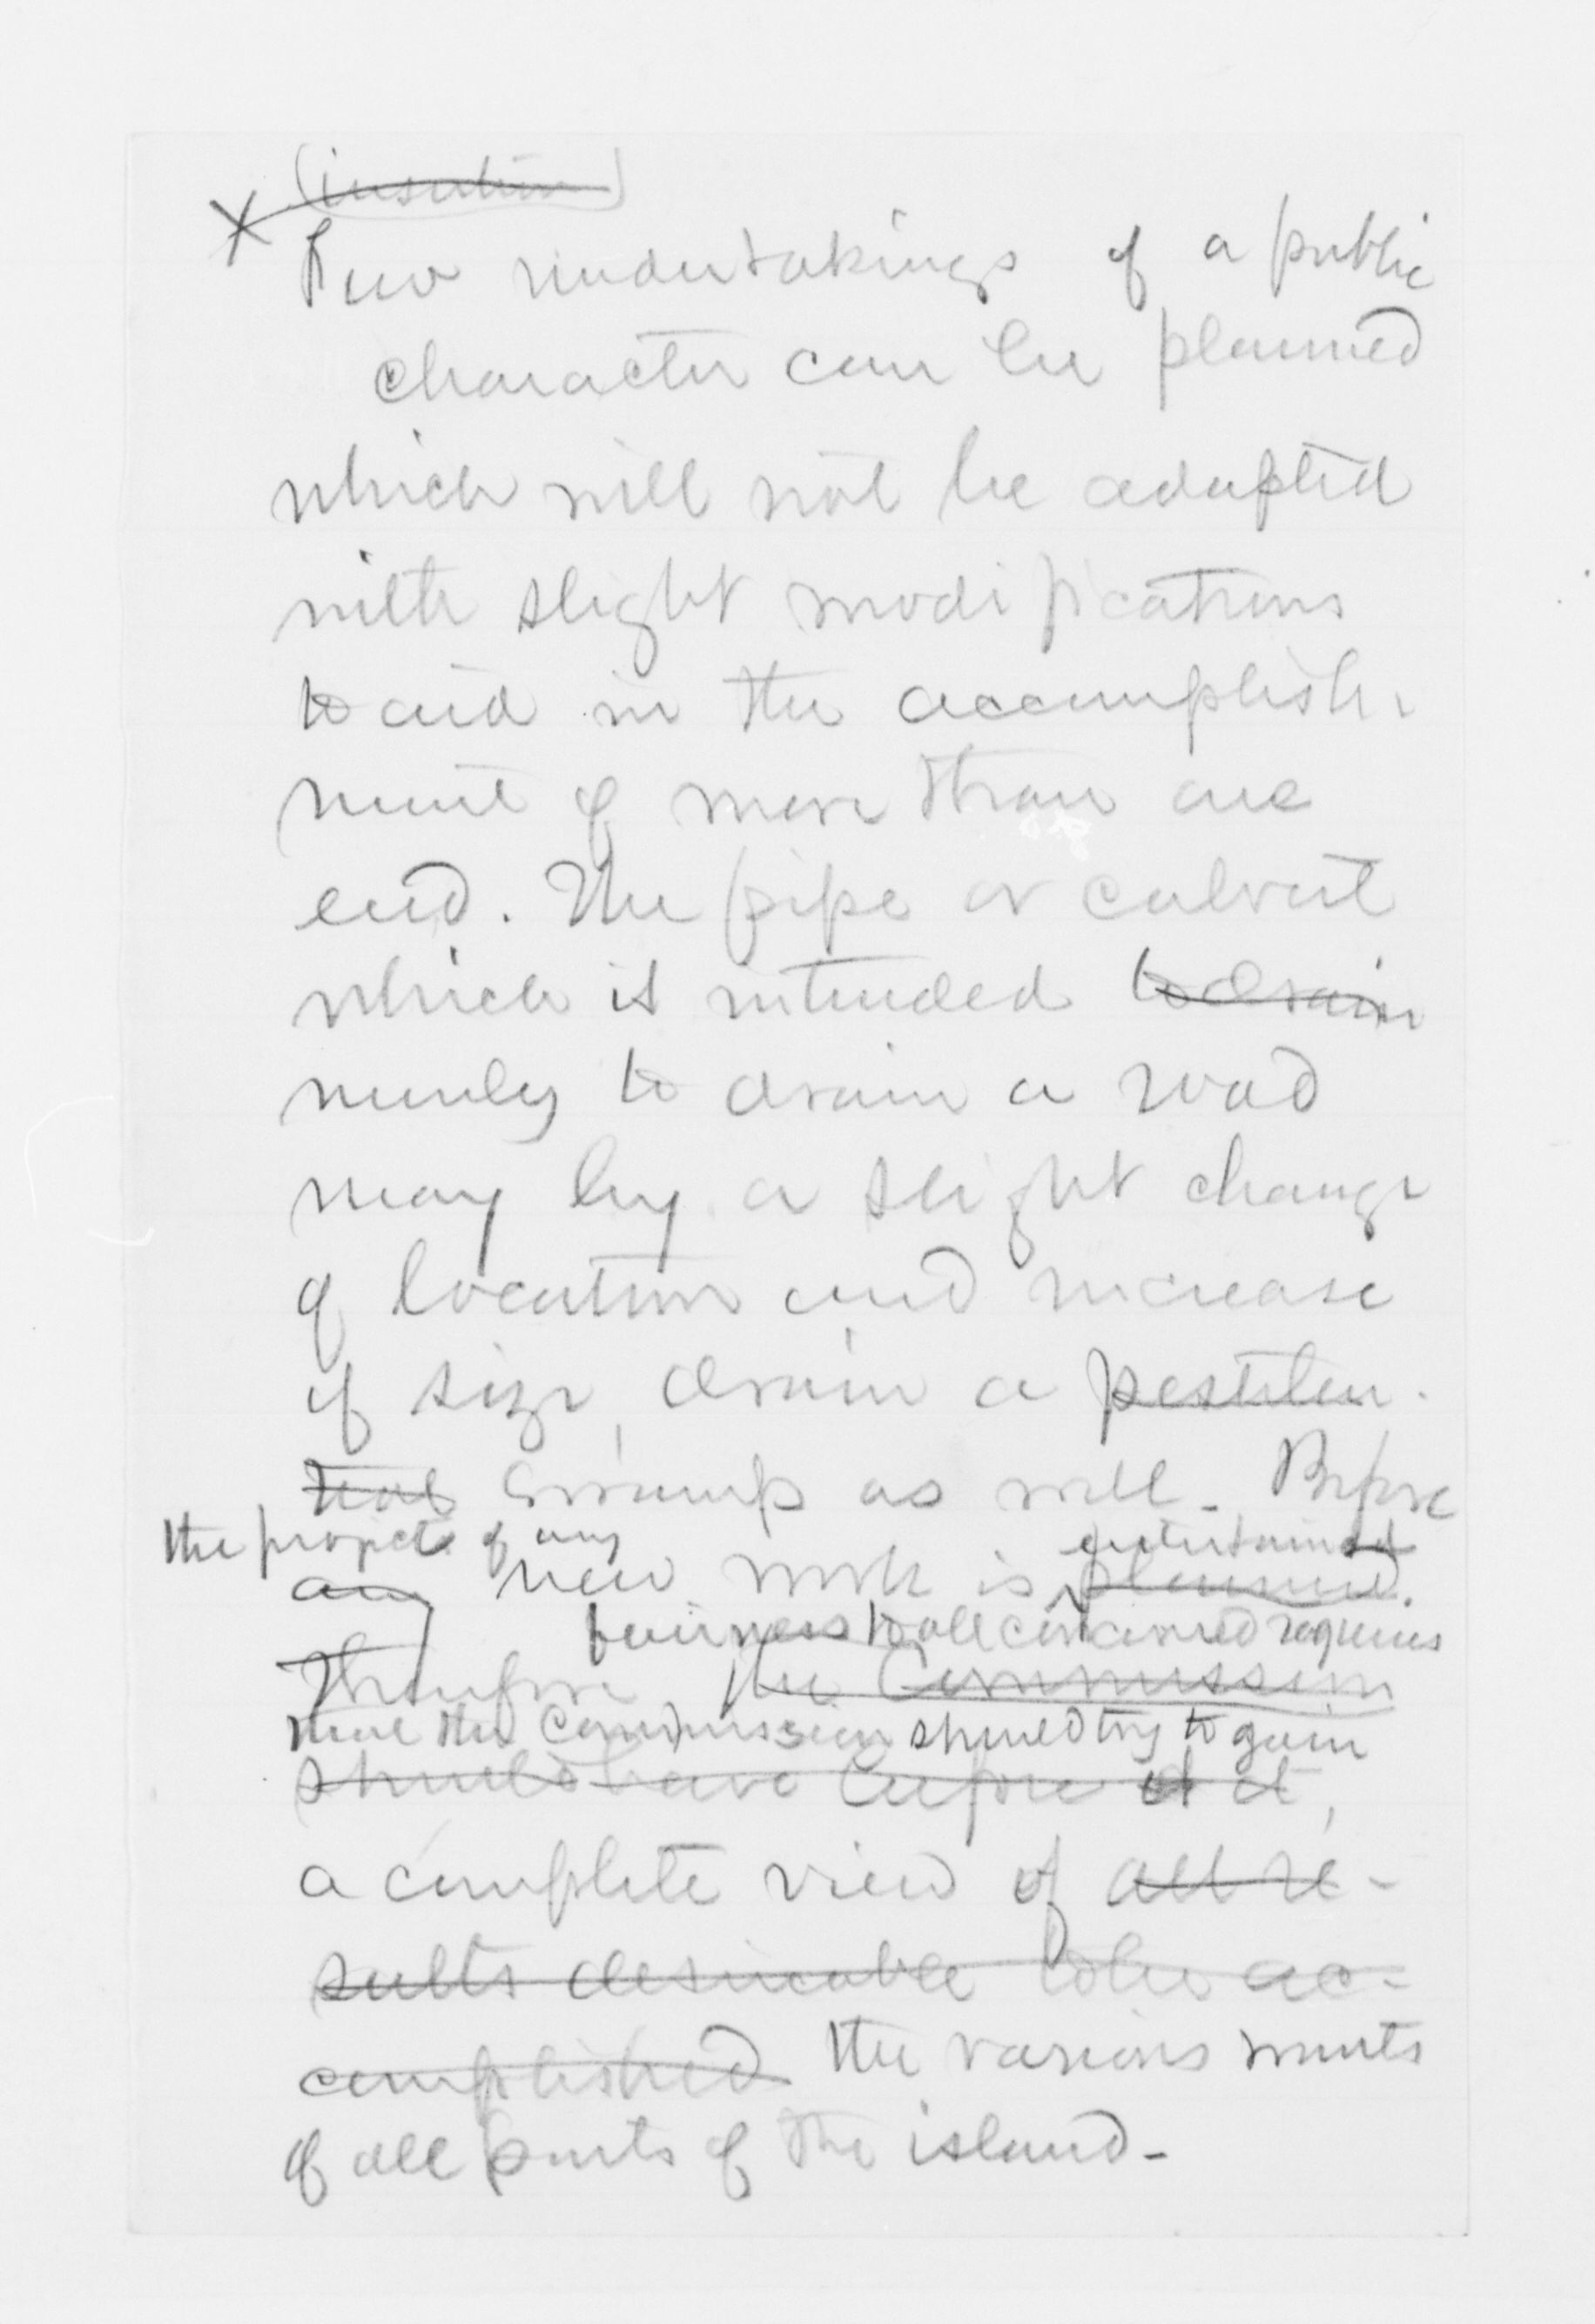 (insertion)
X Few undertakings of a public
character can be planned
which will not be adapted
with slight modifications
to aid in the accomplish-
ment of more than one
end. The pipe or culvert
which is intended to drain
merely to drain a road
may by a slight change
of location and increase
of size, drain a pestilen-
tial swamp as well. Before
the project of any entertained
any new work is planned.
fairness to all concerned requires
Therefore the Commission
that the Commission should try to gain
should have before it at,
a complete view of all re-
sults desirable to be ac-
complished the various wants
of all parts of the island.